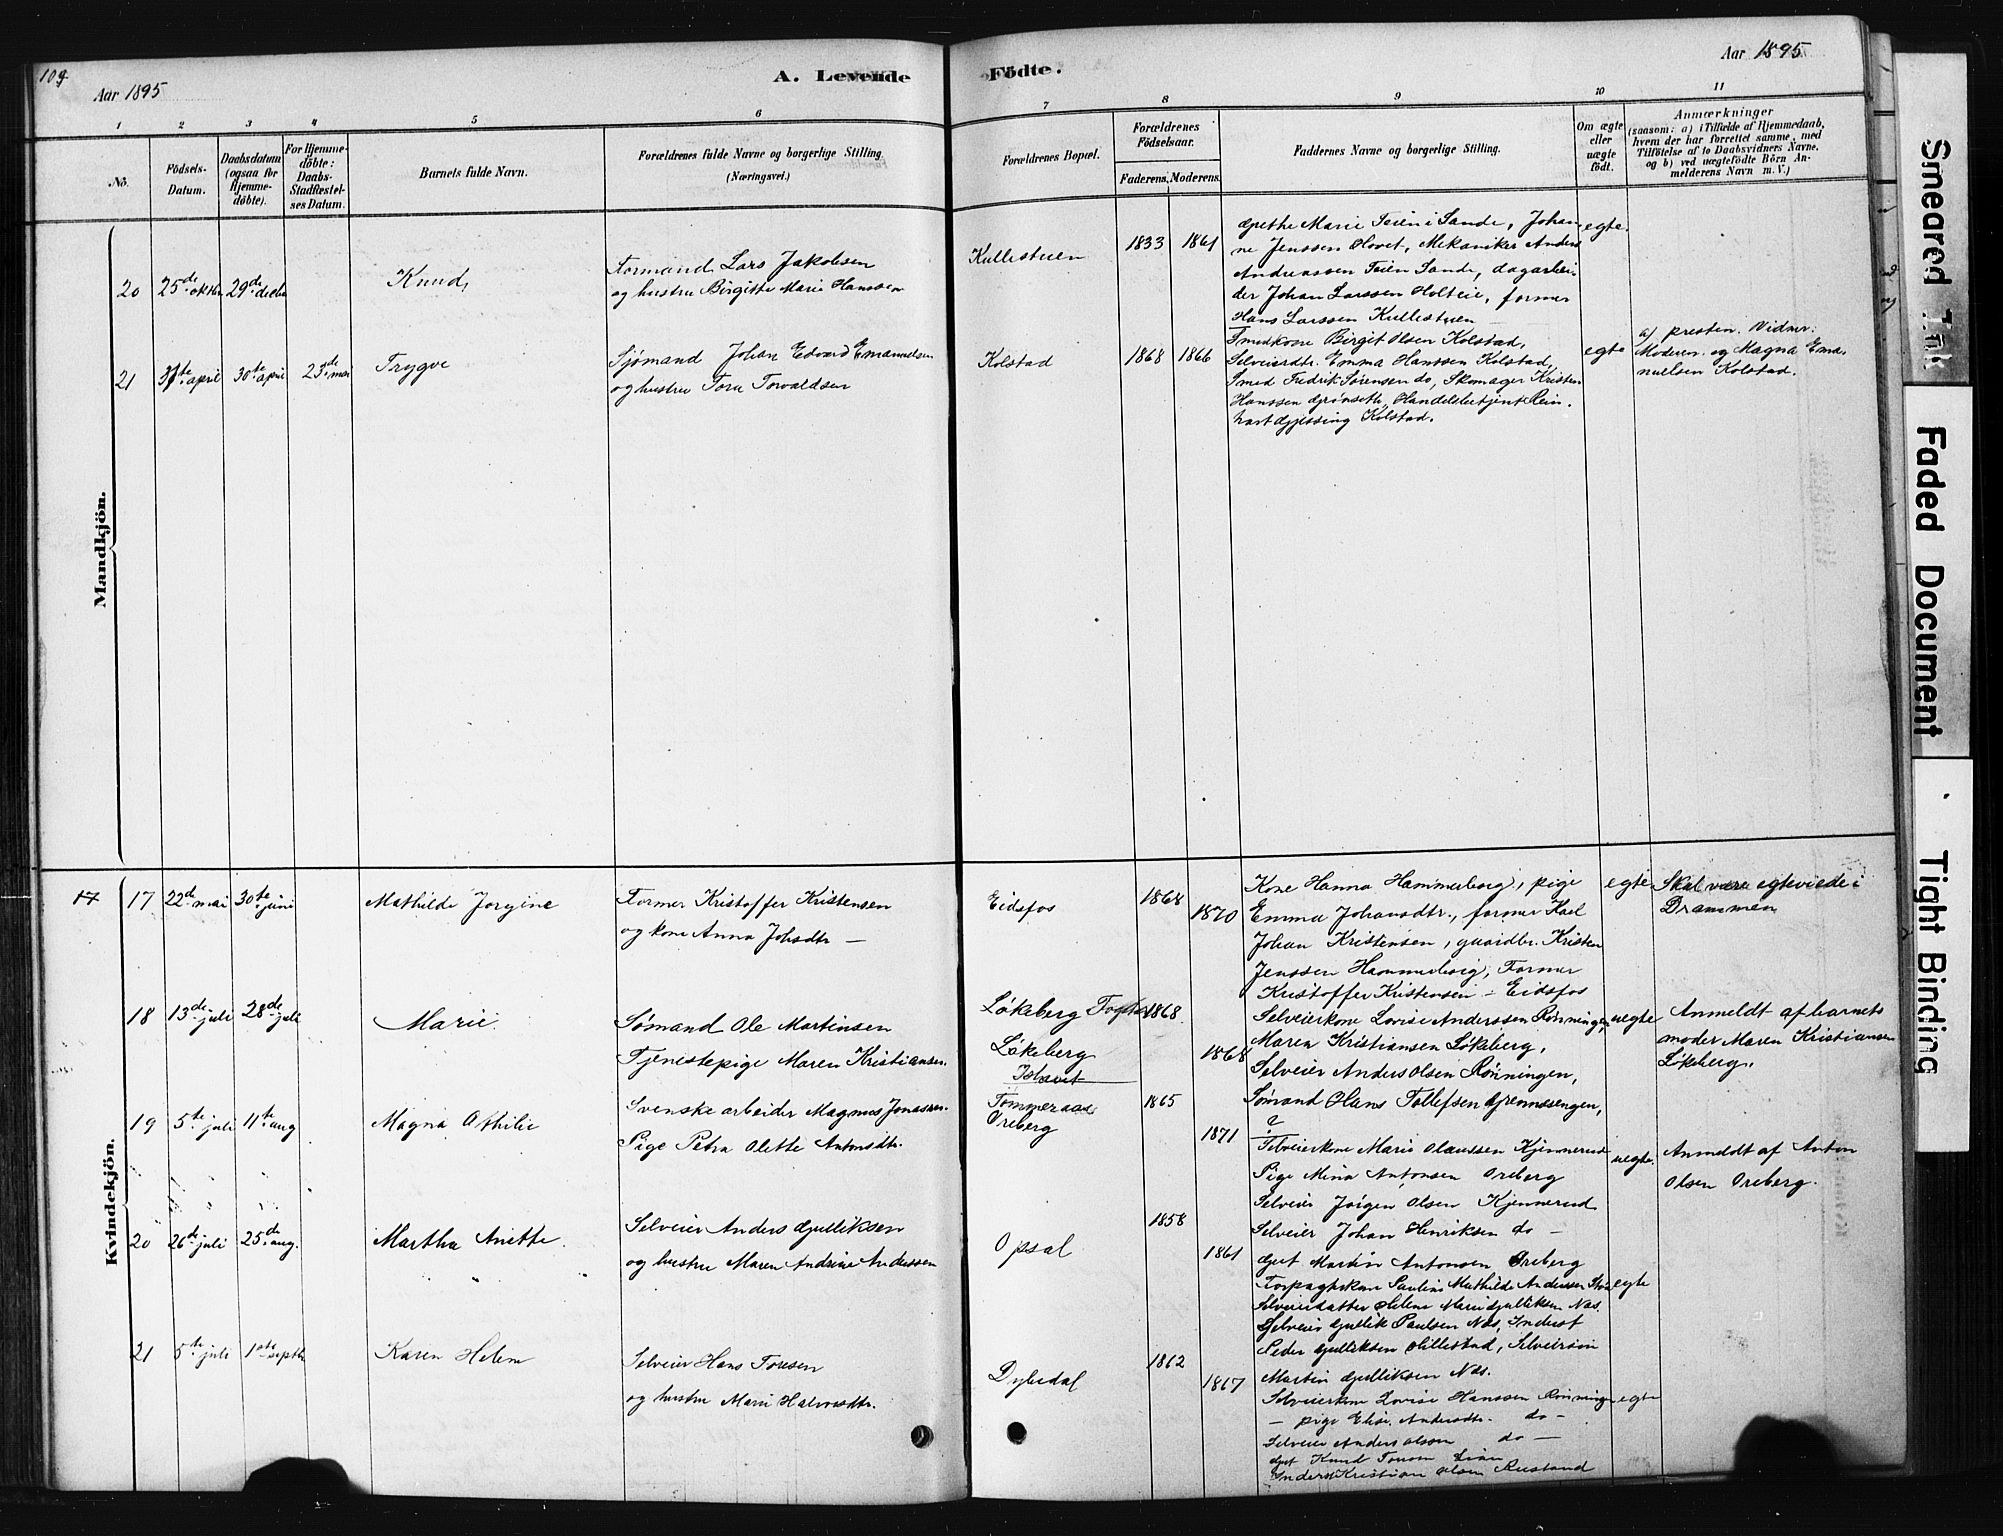 109
Aar 1895
A. Levende Fødte.
Aar 1895
1 2 3 4 5 6 7 8 9 10 11
No.
Födsels-Datum.
Daabsdatum (ogsaa for Hjemme-döbte).
For Hjemme-döbte: Daabs-Stadfæstel-ses Datum.
Barnets fulde Navn.
Forældrenes fulde Navne og borgerlige Stilling (Næringsvei.)
Forældrenes Bopæl.
Forældrenes Födselsaar.
Faderens. Moderens.
Faddernes Navne og borgerlige Stilling.
Om ægte eller uægte födt.
Anmærkninger
(saasom: a) i Tilfælde af Hjemmedaab, hvem der har forrettet samme, med Tilföielse af to Daabsvidners Navne, og b) ved uægtefödte Börn An-melderens Navn m. V.)
Mandkjön.
20 25de oktbr 29de decbr Knud
Formand Lars Jakobsen
og hustru Birgitte Marie Hanssen
Kullestuen 1833 1861
Grethe Marie Teien i Sande, Johan-
ne Jenssen Hovet, Mekaniker Anders
Andreassen Teien Sande, dagarbei-
der Johan Larssen Holteie, former
Hans Larssen Kullestuen
egte
21 april 30te april 23de mai Trygve
Sjømand Johan Edvard Emanuelsen
og hustru Tora Torvaldsen
Kolstad 1868 1866
Smedkone Birgit Olsen Kolstad,
Selveierdtr. Emma Hanssen Kolstad,
Smed Fredrik Sørensen do, Skomager Kristen
Hanssen Grønseth, Handelsbetjent Rein-
hart Gjessing Kolstad.
egte
a) presten. Vidner:
Moderen og Magna Ema-
nuelsen Kolstad.
Kvindekjön.
17 17 22de mai 30te juni Mathilde Jorgine
Former Kristoffer Kristensen
og kone Anna Johsdtr —
Eidsfos 1868 1870
Kone Hanna Hammerborg, pige
Emma Johansdtr., former Karl
Johan Kristensen, gaardbr. Kristen
Jenssen Hammerborg, Former
Kristoffer Kristensen - Eidsfos
egte
Skal være egteviede i
Drammen
18 13de juli 28de juli Marie
Sømand Ole Martinsen
Tjenestepige Maren Kristiansen.
Løkeberg
Løkeberg
1868 1868
Selveierkone Lovise Anderssen Rønningen,
Maren Kristiansen Løkeberg,
Selveier Anders Olsen Rønningen,
Sømand Hans Tollefsen Grennesengen,
?
uegte
Anmeldt af barnets
moder Maren Kristiansen
Løkeberg.
19 5te juli 11te aug Magna Othilie
Svenske arbeider Magnus Jonassen.
Pige Petra Olette Antonsdtr.
Tømmeraas
Oreberg
1865 1871
Selveierkone Marie Olaussen Kjennerud
Pige Mina Antonsen Oreberg
Selveier Jørgen Olsen Kjennerud
Selveier Johan Henriksen do —
Gut Martin Antonsen Oreberg
uegte.
Anmeldt af Anton
Olsen Oreberg.
20 26de juli 25de aug. Martha Anette.
Selveier Anders Gulliksen
og hustru Maren Andrine Anderssen
Opsal 1858 1861
Mathilde Anderssen
Selveierdatter Helene Marie Gulliksen Næs.
Selveier Gullik Paulsen Næs, Inderst
Peder Gulliksen Hillestad, Selveiersøn
Martin Gulliksen Næs.
egte
21 5te juli 1ste septbr Karen Helene
Selveier Hans Toresen
og hustru Marie Halvorsdtr.
Dybedal 1862 1867
Selveierkone Lovise Hanssen Rønningen
— pige Elise Andersdtr. do —
Selveier Anders Olsen do —
Gut Knud Toresen
Inderst Kristian Olsen Rustand
egte
Smeared Ink
Faded Document
Tight Binding